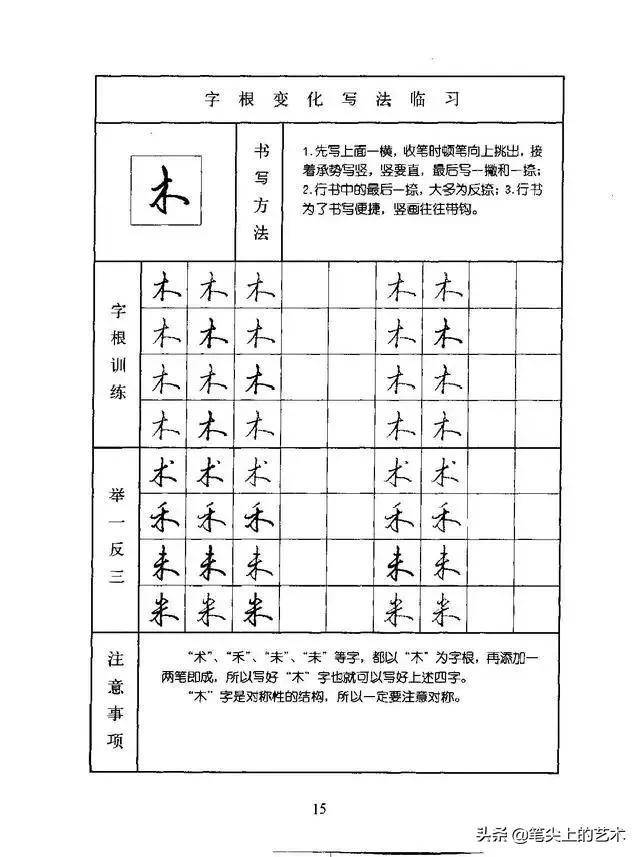 字根变化写法临习
木
书写方法
1.先写上面一横，收笔时顿笔向上挑出，接
着承势写竖，竖要直，最后写一撇和一捺；
2.行书中的最后一捺，大多为反捺；3.行书
为了书写便捷，竖画往往带钩。
字根训练
木 木 木 木 木
木 木 木 木 木
木 木 木 木 木
木 木 木 木 木
举一反三
术 术 术 术 术
禾 禾 禾 禾 禾
未 未 未 未 未
米 米 米 米 米
注意事项
“术”、“禾”、“末”、“未”等字，都以“木”为字根，再添加一
两笔即成，所以写好“木”字也就可以写好上述四字。
“木”字是对称性的结构，所以一定要注意对称。
15
头条@笔尖上的艺术